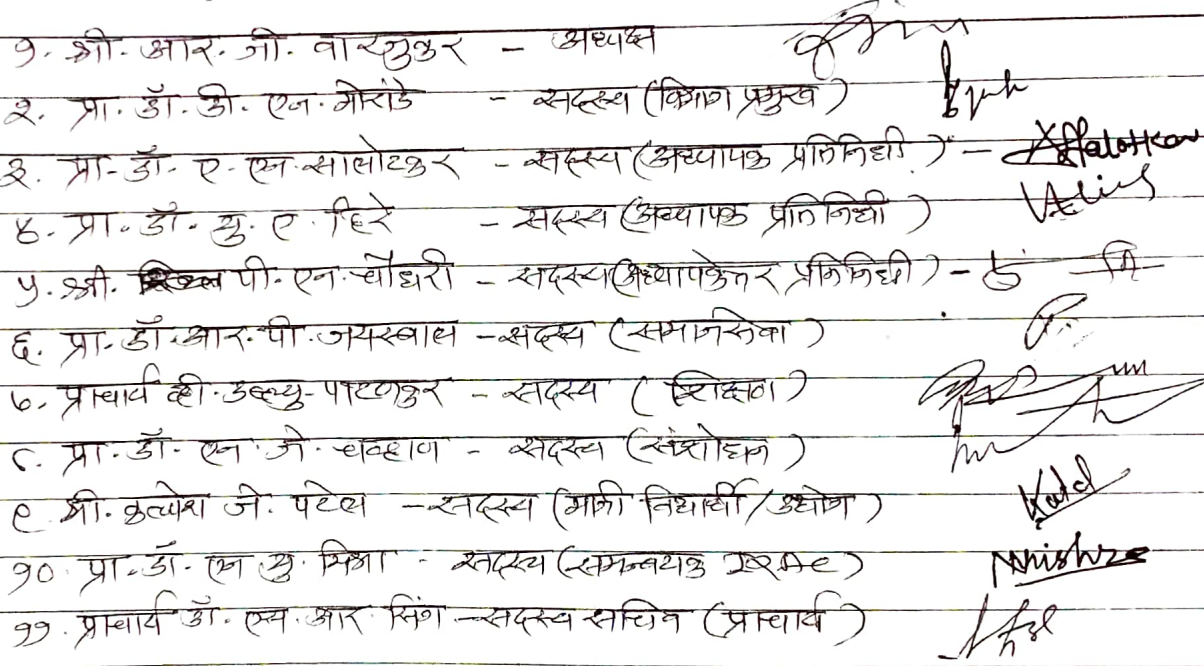 १. श्री. आर. जी. वारडुकर - अध्यक्ष
२. प्रा. डॉ. डी. एन. गोरांडे - सदस्य (विभाग प्रमुख)
३. प्रा. डॉ. ए. एन. सालोटकर - सदस्य (अध्यापक प्रतिनिधी) - Salotkar
४. प्रा. डॉ. यु. ए. हिरे - सदस्य (अध्यापक प्रतिनिधी)
५. श्री. पी. एन. चौधरी - सदस्य (अध्यापकेत्तर प्रतिनिधी) -
६. प्रा. डॉ. आर. पी. जयस्वाल - सदस्य (समाजसेवा)
७. प्राचार्य व्ही. डब्ल्यु. पाटणकर - सदस्य (शिक्षण)
८. प्रा. डॉ. एन. जे. चव्हाण - सदस्य (संशोधन)
९. श्री. कल्पेश जे. पटेल - सदस्य (माजी विद्यार्थी / उद्योग)
१०. प्रा. डॉ. एन. यु. मिश्रा - सदस्य (समन्वयक IQAC) Mishra
११. प्राचार्य डॉ. एच. आर. सिंग - सदस्य सचिव (प्राचार्य)